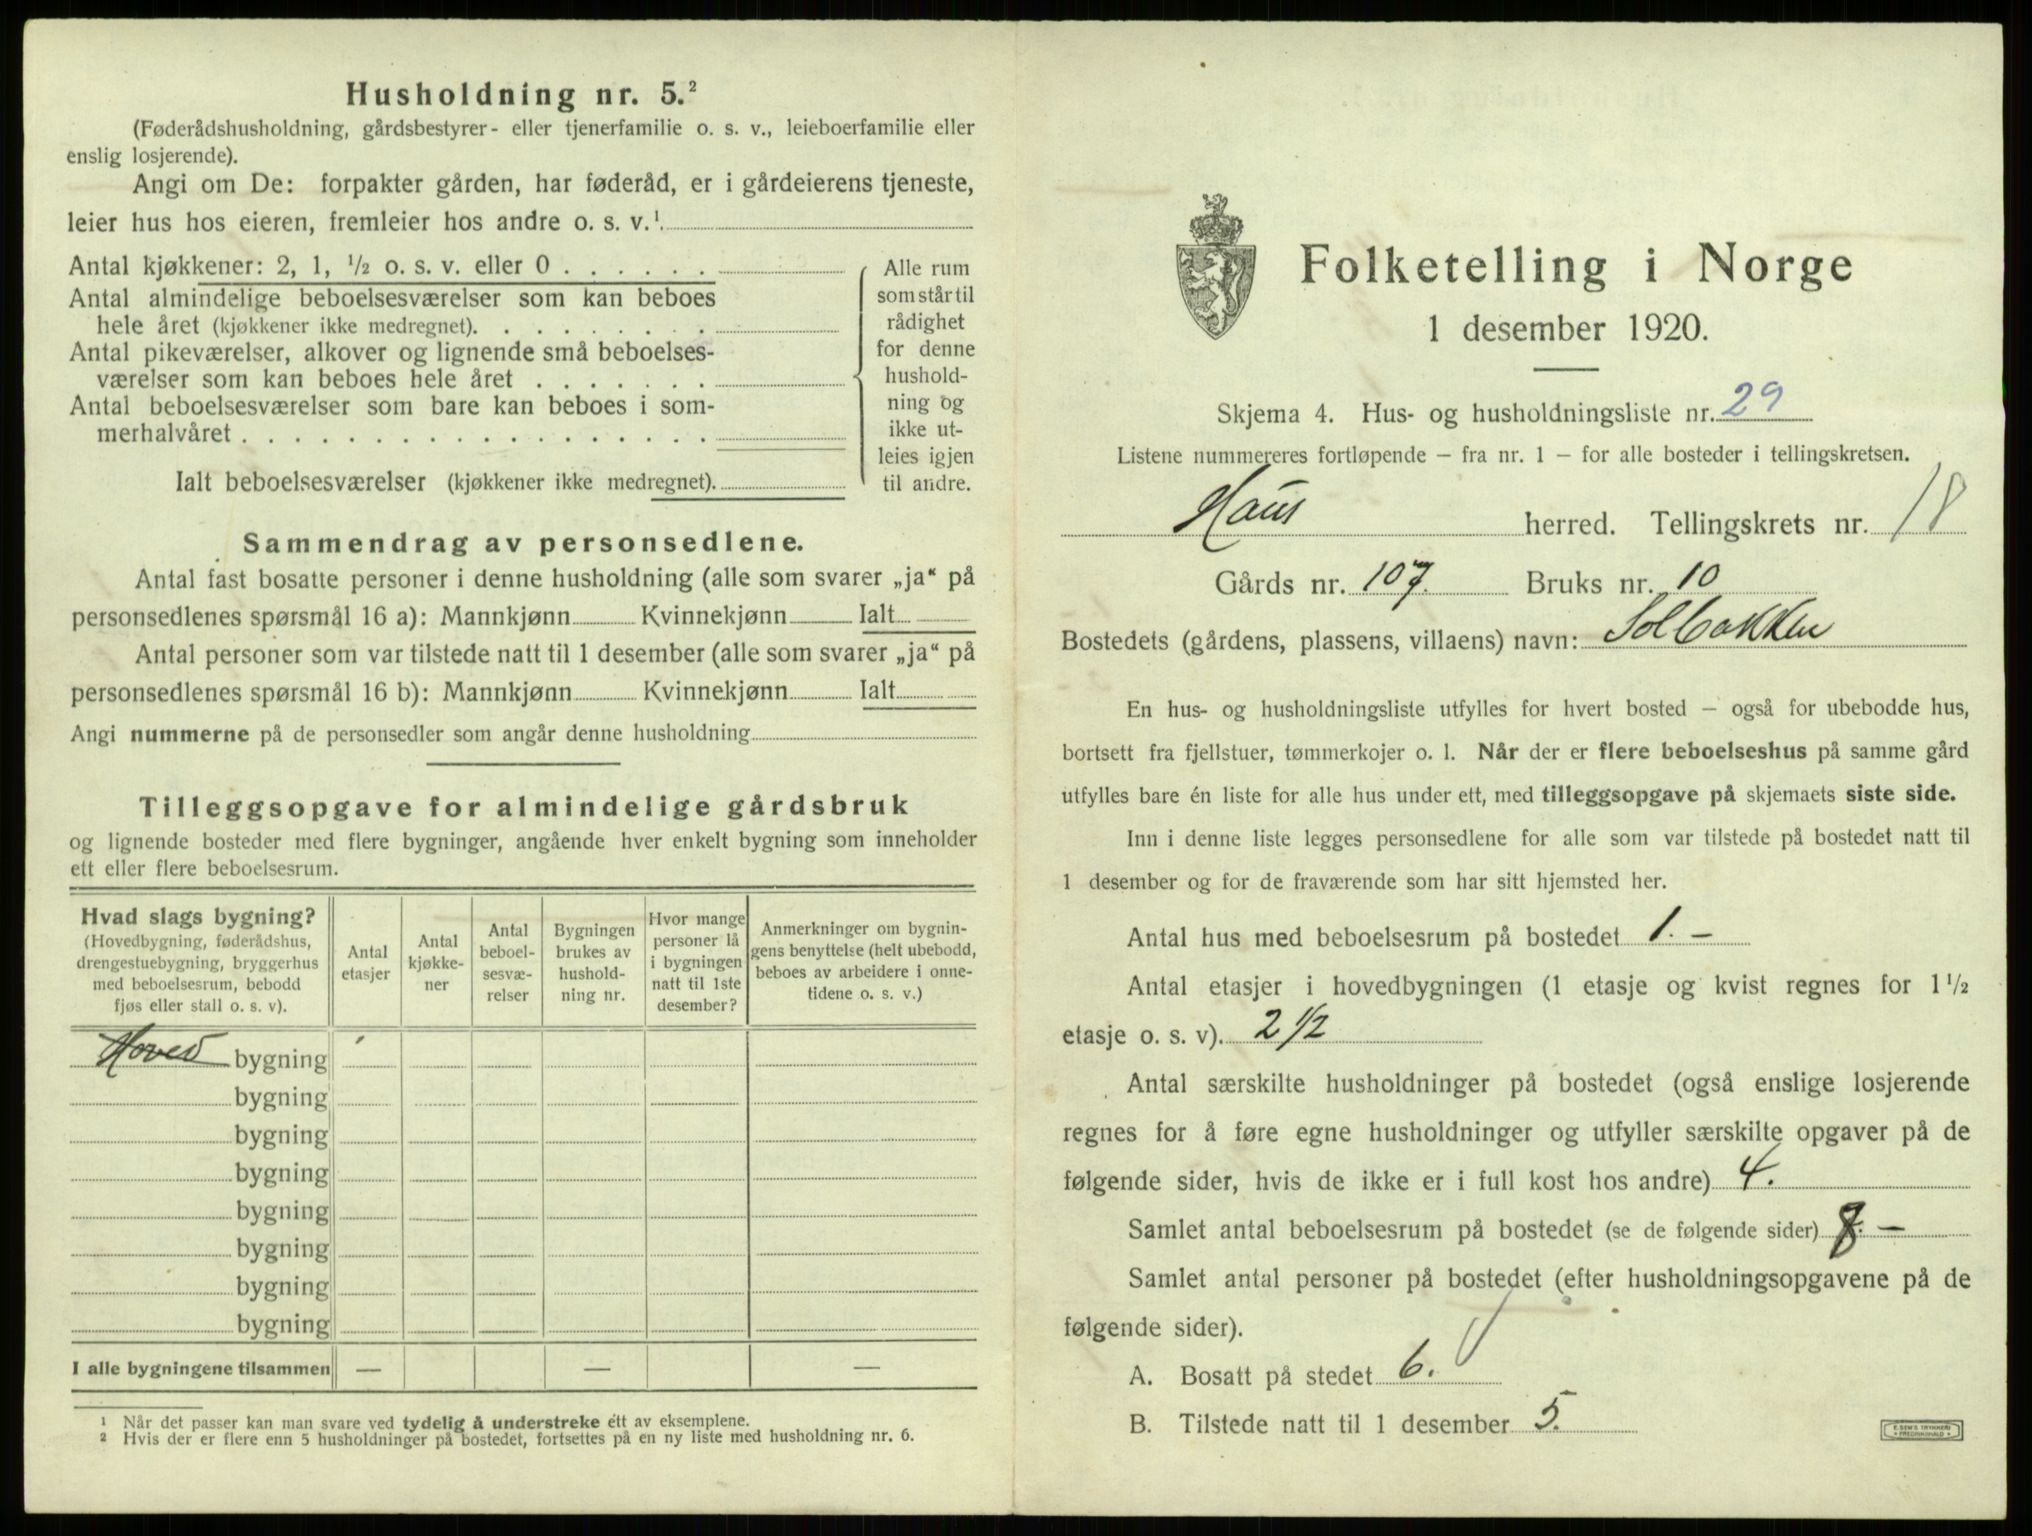 Husholdning nr. 5.²
(Føderådshusholdning, gårdsbestyrer- eller tjenerfamilie o. s. v., leieboerfamilie eller
enslig losjerende).
Angi om De: forpakter gården, har føderåd, er i gårdeierens tjeneste,
leier hus hos eieren, fremleier hos andre o. s. v.¹
Antal kjøkkener: 2, 1, ½ o. s. v. eller 0 . . . . . .
Antal almindelige beboelsesværelser som kan beboes
hele året (kjøkkener ikke medregnet). . . . . . . . .
Antal pikeværelser, alkover og lignende små beboelses-
værelser som kan beboes hele året . . . . . . .
Antal beboelsesværelser som bare kan beboes i som-
merhalvåret . . . . . . . . . . . . . . . . . .
Ialt beboelsesværelser (kjøkkener ikke medregnet).
Alle rum
som står til
rådighet
for denne
hushold-
ning og
ikke ut-
leies igjen
til andre.
Sammendrag av personsedlene.
Antal fast bosatte personer i denne husholdning (alle som svarer „ja“ på
personsedlenes spørsmål 16 a): Mannkjønn Kvinnekjønn Ialt
Antal personer som var tilstede natt til 1 desember (alle som svarer „ja“ på
personsedlenes spørsmål 16 b): Mannkjønn Kvinnekjønn Ialt
Angi nummerne på de personsedler som angår denne husholdning
Tilleggsopgave for almindelige gårdsbruk
og lignende bosteder med flere bygninger, angående hver enkelt bygning som inneholder
ett eller flere beboelsesrum.
Hvad slags bygning?
(Hovedbygning, føderådshus,
drengestuebygning, bryggerhus
med beboelsesrum, bebodd
fjøs eller stall o. s. v).
Antal
etasjer
Antal
kjøkke-
ner
Antal
beboel-
sesvæ-
relser
Bygningen
brukes av
hushold-
ning nr.
Hvor mange
personer lå
i bygningen
natt til 1ste
desember?
Anmerkninger om bygnin-
gens benyttelse (helt ubebodd,
beboes av arbeidere i onne-
tidene o. s. v.)
Hoved bygning
bygning
bygning
bygning
bygning
bygning
bygning
bygning
I alle bygningene tilsammen — — —
¹ Når det passer kan man svare ved tydelig å understreke étt av eksemplene.
² Hvis der er flere enn 5 husholdninger på bostedet, fortsettes på en ny liste med husholdning nr. 6.
Folketelling i Norge
1 desember 1920.
Skjema 4. Hus- og husholdningsliste nr. 29
Listene nummereres fortløpende – fra nr. 1 – for alle bosteder i tellingskretsen.
Haus herred. Tellingskrets nr. 18
Gårds nr. 107. Bruks nr. 10
Bostedets (gårdens, plassens, villaens) navn: Solbakken
En hus- og husholdningsliste utfylles for hvert bosted – også for ubebodde hus,
bortsett fra fjellstuer, tømmerkojer o. l. Når der er flere beboelseshus på samme gård
utfylles bare én liste for alle hus under ett, med tilleggsopgave på skjemaets siste side.
Inn i denne liste legges personsedlene for alle som var tilstede på bostedet natt til
1 desember og for de fraværende som har sitt hjemsted her.
Antal hus med beboelsesrum på bostedet 1. –
Antal etasjer i hovedbygningen (1 etasje og kvist regnes for 1 ½
etasje o. s. v). 2 ½
Antal særskilte husholdninger på bostedet (også enslige losjerende
regnes for å føre egne husholdninger og utfyller særskilte opgaver på de
følgende sider, hvis de ikke er i full kost hos andre) 4.
Samlet antal beboelsesrum på bostedet (se de følgende sider) 8. –
Samlet antal personer på bostedet (efter husholdningsopgavene på de
følgende sider).
A. Bosatt på stedet 6.
B. Tilstede natt til 1 desember 5.
E. SEM'S TRYKKERI
FREDRIKSHALD